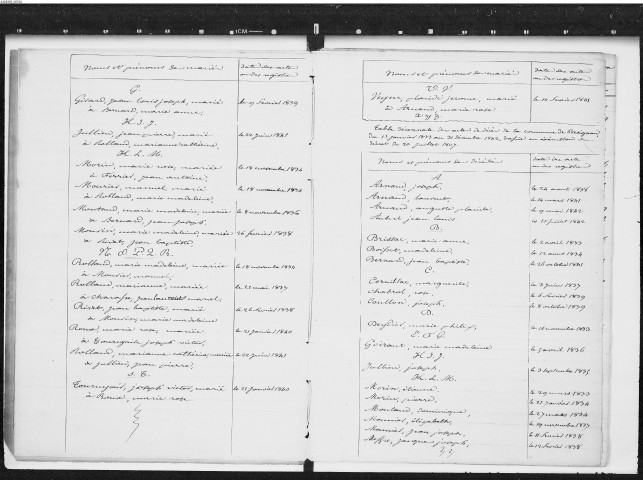 Noms et prénoms des mariés
Date des actes
ou des registres
G.
Girard, jean louis joseph, marié
à Bernard, marie anne,
le 17 février 1839
H. I. J.
Jullien, jean pierre, marié
à Rolland, marianne catherine,
le 22 juin 1841
K. L. M.
Morin, marie rose, mariée
à Ferrier, jean antoine,
le 18 novembre 1834
Mourier, manuel, marié
à Rolland, marie madeleine,
le 18 novembre 1834
Moutaud, marie madeleine, mariée
à Bernard, jean joseph,
le 8 novembre 1836
Mourier, marie madeleine, mariée
jean baptiste,
26 février 1838
N. O. P. Q. R.
Rolland, marie madeleine, mariée
à Mourier, manuel,
le 18 novembre 1834
Rolland, marianne, mariée
le 22 mai 1837
jean baptiste, marié
à Mourier, marie madeleine
le 26 février 1838
Roma, marie rose, mariée
à Tourniguil, joseph victor,
le 21 janvier 1840
Rolland, marianne catherine, mariée
à jullien, jean pierre,
le 22 juin 1841
S. T.
joseph victor, marié
à Roma, marie rose
le 21 janvier 1840
Noms et prénoms des mariés
Date des actes
ou des registres
U. V.
placide jerome, marié
à Arnaud, marie rose
X Y Z
Table décennale des actes de décès de la commune de
du 1er janvier 1833 au 31 décembre 1842, dressée en exécution du
décret du 20 juillet 1807.
Noms et prénoms des décédés
Date des actes
ou des registres
A
Arnaud, joseph,
le 24 août 1838
Arnaud, laurent,
le 14 mars 1841
Arnaud, auguste placide,
le 19 mai 1842
Aubert jean louis
B.
Brissac, marie anne,
le 2 avril 1833
madeleine,
le 12 août 1834
Bernard, jean baptiste,
le 26 octobre 1841
C.
Cornillac, marguerite,
le 3 juin 1837
Chabral, rose,
le 6 février 1839
Coullon, joseph,
le 8 octobre 1839
D.
marie
le 16 novembre 1833
E. F. G.
marie madeleine
le 9 avril 1836
H. I. J.
Jullien, joseph,
le 3 septembre 1835
K. L. M.
Morin, étienne,
le 29 mars 1833
Morin, pierre,
le 21 janvier 1834
Moutaud, dominique,
le 27 mars 1834
Mourier, élizabeth,
le 29 novembre 1837
Mourier, jean joseph,
le 11 février 1838
jacques joseph,
le 12 février 1838